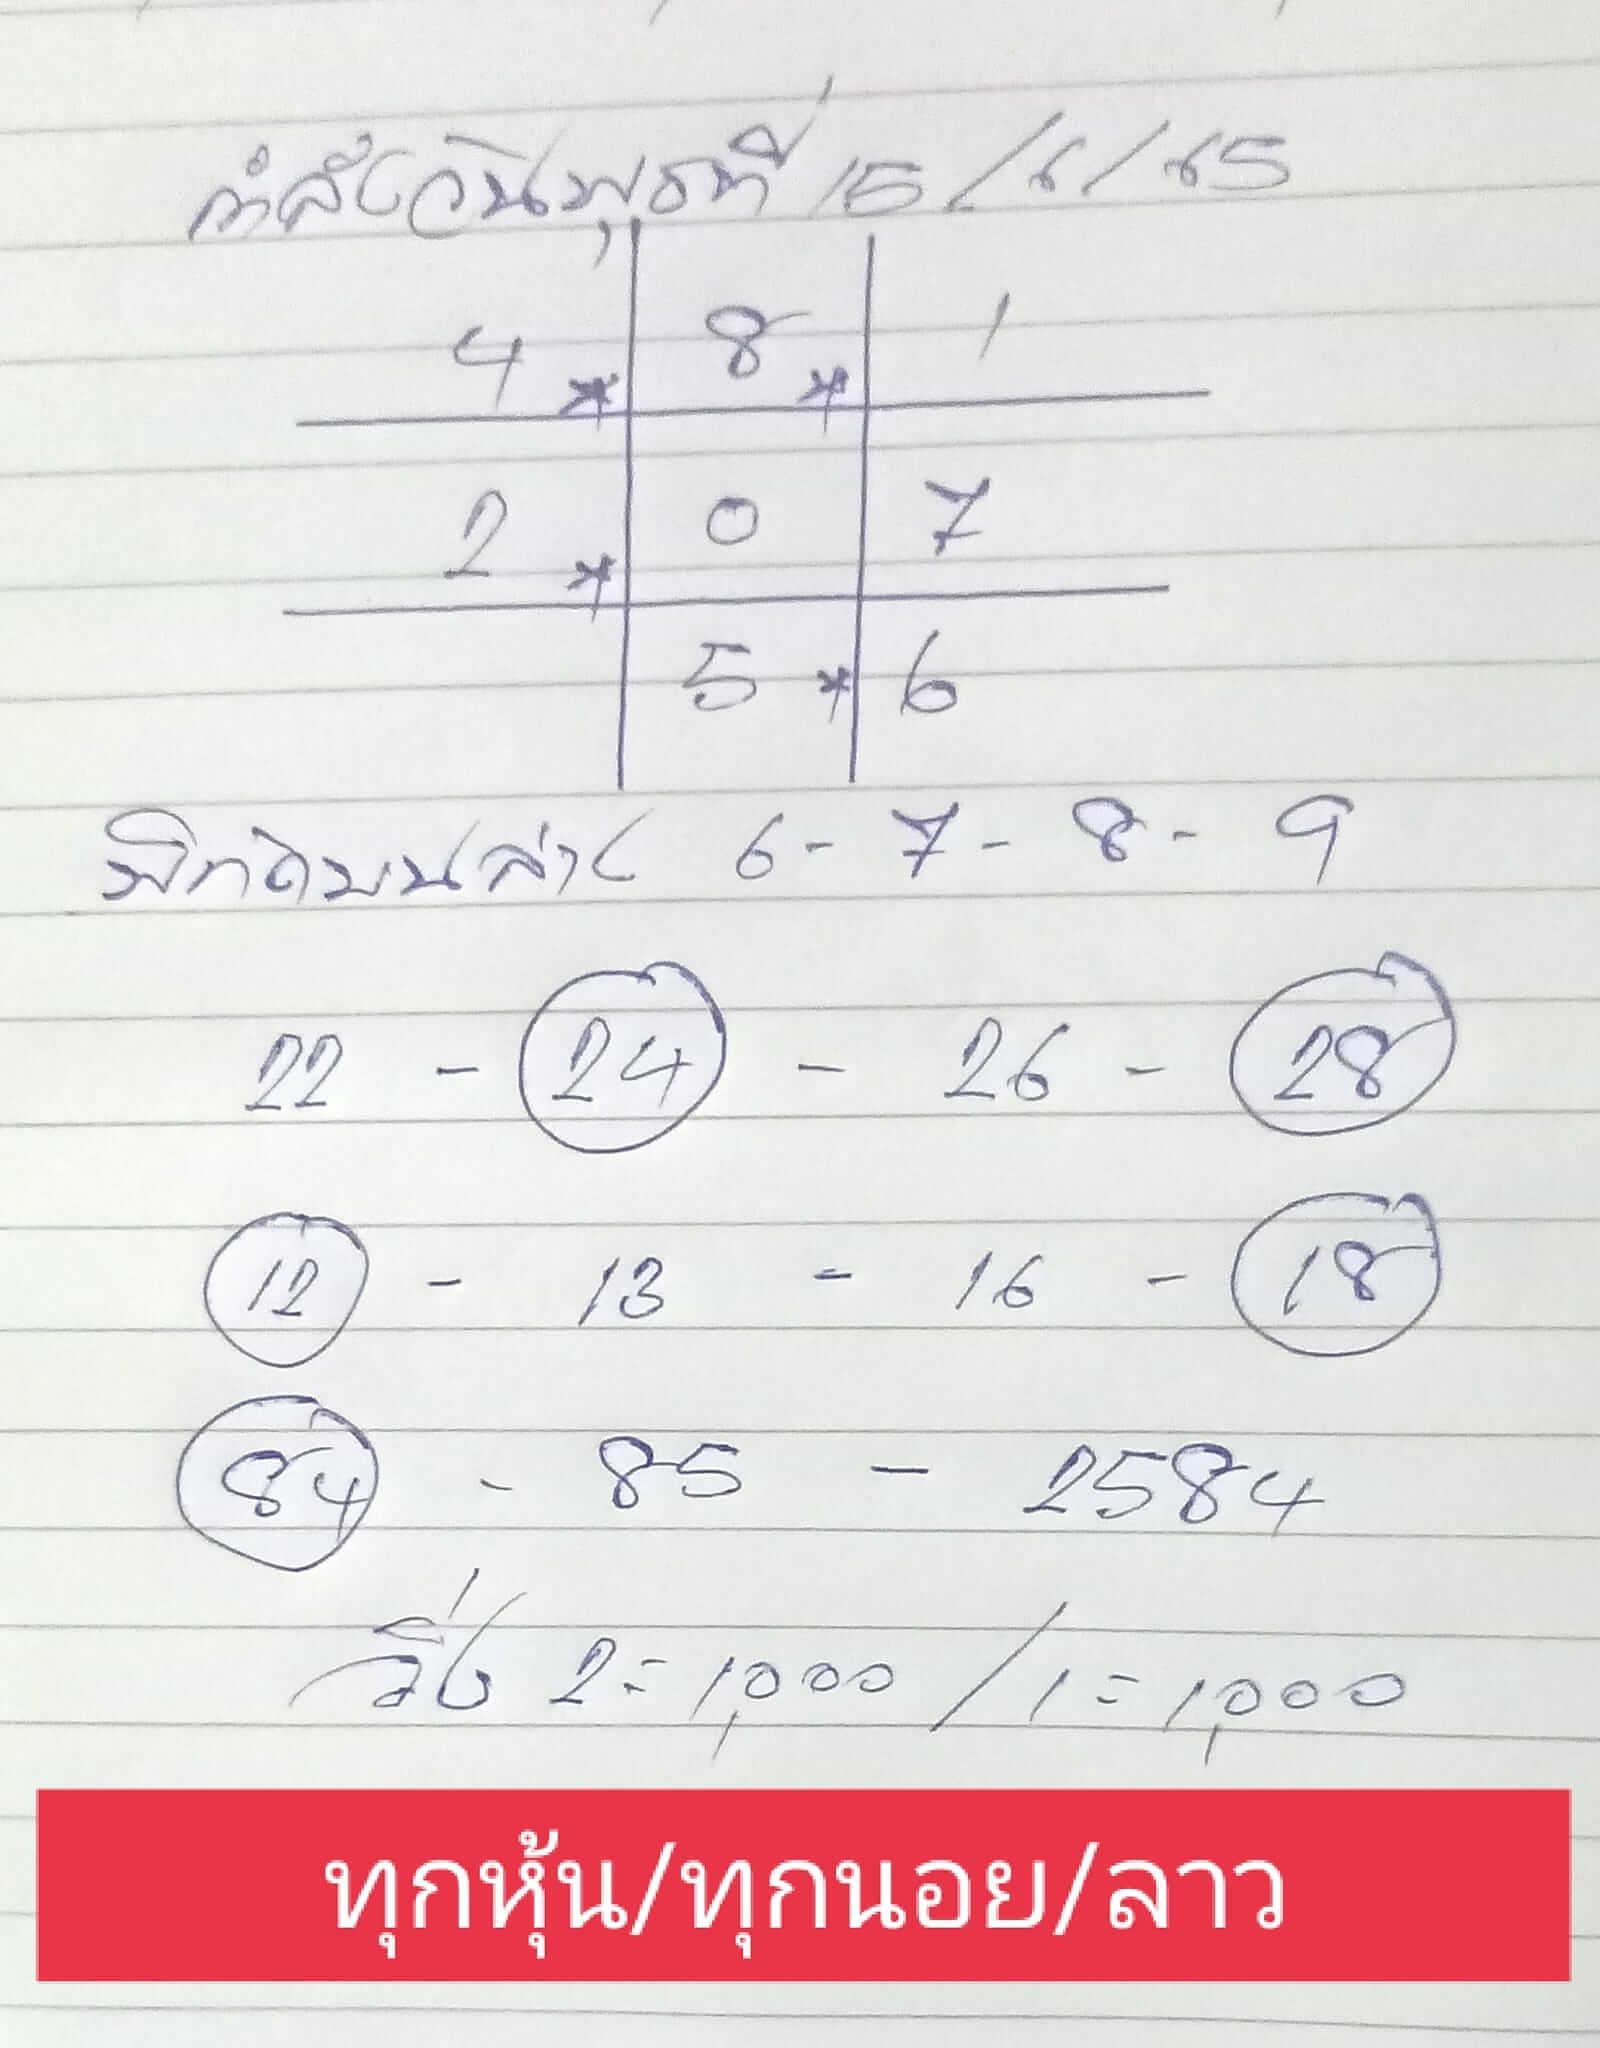 กำลังวันพุธที่ 15/6/65
4 * 8 * 1
2 * 0 7
5 * 6
พิกัดบนล่าง 6 - 7 - 8 - 9
22 - 24 - 26 - 28
12 - 13 - 16 - 18
84 - 85 - 2584
วิ่ง 2 = 1,000 / 1 = 1,000
ทุกหุ้น/ทุกนอย/ลาว